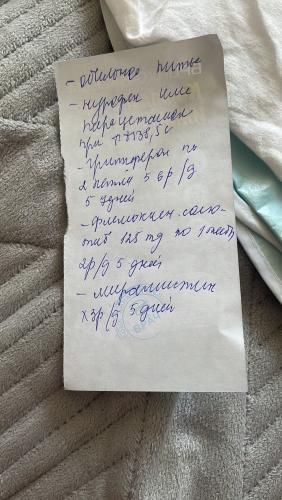 - обильное питье
- нурофен или
парацетамол
при t > 38,5 с
- гриппферон по
2 капли 5 6р/д
5 дней
- Флемоксин солю-
таб 125 mg по 1 табл
2р/д 5 дней
- мирамистин
х3р/д 5 дней
ВРАЧ